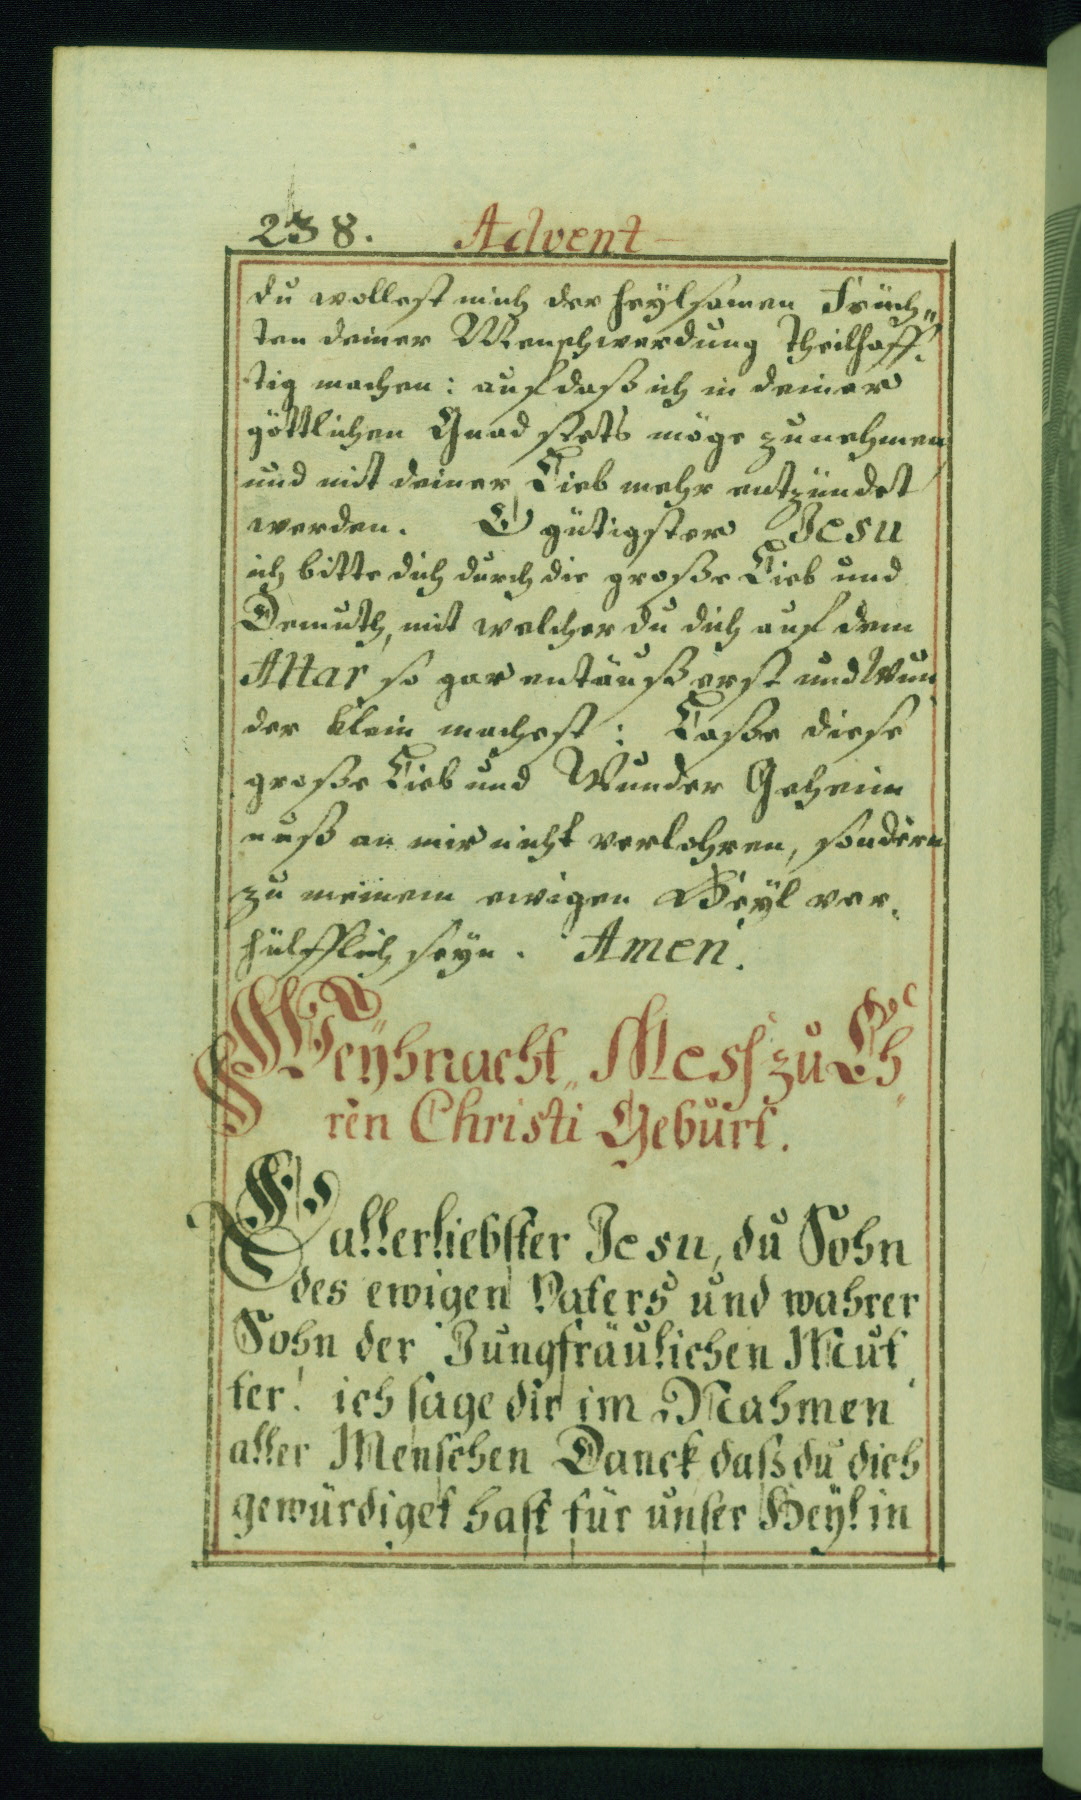 238. Advent
du wollest mich der heylsamen Früch„
ten deiner Menschwerdung theilhaff„
tig machen: auf daß ich in deiner
göttlichen Gnad stets möge zunehmen
und mit deiner Lieb mehr entzündet
werden. O gütigster Jesu
ich bitte dich durch die große Lieb und
Demuth, mit welcher du dich auf dem
Altar so gar entäußerst und Wun
der klein machest: Laße diese
große Lieb und Wunder Geheim
nuß an mir nicht verlohren, sondern
zu meinem ewigen Heyl ver„
hülfflich seyn. Amen.
Weyhnacht„ Mess zu Eh„
ren Christi Geburt.
O allerliebster Jesu, du Sohn
des ewigen Vaters und wahrer
Sohn der Jungfräulichen Mut
ter! ich sage dir im Nahmen
aller Menschen Danck daß du dich
gewürdiget hast für unser Heyl in